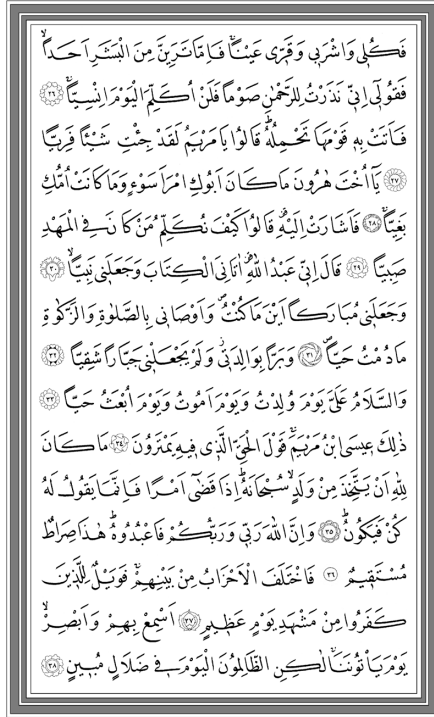 فَكُلِي وَاشْرَبِي وَقَرِّي عَيْنًاۚ فَاِمَّا تَرَيِنَّ مِنَ الْبَشَرِ اَحَدًاۙ
فَقُولِٓي اِنِّي نَذَرْتُ لِلرَّحْمٰنِ صَوْمًا فَلَنْ اُكَلِّمَ الْيَوْمَ اِنْسِيًّاۚ ﴿٢٦﴾
فَاَتَتْ بِهِ قَوْمَهَا تَحْمِلُهُۜ قَالُوا يَا مَرْيَمُ لَقَدْ جِئْتِ شَيْـًٔا فَرِيًّا
﴿٢٧﴾ يَٓا اُخْتَ هٰرُونَ مَا كَانَ اَبُوكِ امْرَاَ سَوْءٍ وَمَا كَانَتْ اُمُّكِ
بَغِيًّاۚ ﴿٢٨﴾ فَاَشَارَتْ اِلَيْهِۜ قَالُوا كَيْفَ نُكَلِّمُ مَنْ كَانَ فِي الْمَهْدِ
صَبِيًّا ﴿٢٩﴾ قَالَ اِنِّي عَبْدُ اللّٰهِۜ اٰتَانِيَ الْكِتَابَ وَجَعَلَنِي نَبِيًّاۙ ﴿٣٠﴾
وَجَعَلَنِي مُبَارَكًا اَيْنَ مَا كُنْتُۖ وَاَوْصَانِي بِالصَّلٰوةِ وَالزَّكٰوةِ
مَا دُمْتُ حَيًّاۖ ﴿٣١﴾ وَبَرًّا بِوَالِدَتِيۘ وَلَمْ يَجْعَلْنِي جَبَّارًا شَقِيًّا ﴿٣٢﴾
وَالسَّلَامُ عَلَيَّ يَوْمَ وُلِدْتُ وَيَوْمَ اَمُوتُ وَيَوْمَ اُبْعَثُ حَيًّا ﴿٣٣﴾
ذٰلِكَ عِيسَى ابْنُ مَرْيَمَۚ قَوْلَ الْحَقِّ الَّذِي فِيهِ يَمْتَرُونَ ﴿٣٤﴾ مَا كَانَ
لِلّٰهِ اَنْ يَتَّخِذَ مِنْ وَلَدٍۙ سُبْحَانَهُۜ اِذَا قَضٰٓى اَمْرًا فَاِنَّمَا يَقُولُ لَهُ
كُنْ فَيَكُونُۜ ﴿٣٥﴾ وَاِنَّ اللّٰهَ رَبِّي وَرَبُّكُمْ فَاعْبُدُوهُۜ هٰذَا صِرَاطٌ
مُسْتَقِيمٌ ﴿٣٦﴾ فَاخْتَلَفَ الْاَحْزَابُ مِنْ بَيْنِهِمْۚ فَوَيْلٌ لِلَّذِينَ
كَفَرُوا مِنْ مَشْهَدِ يَوْمٍ عَظِيمٍ ﴿٣٧﴾ اَسْمِعْ بِهِمْ وَاَبْصِرْۙ
يَوْمَ يَأْتُونَنَا لٰكِنِ الظَّالِمُونَ الْيَوْمَ فِي ضَلَالٍ مُبِينٍ ﴿٣٨﴾